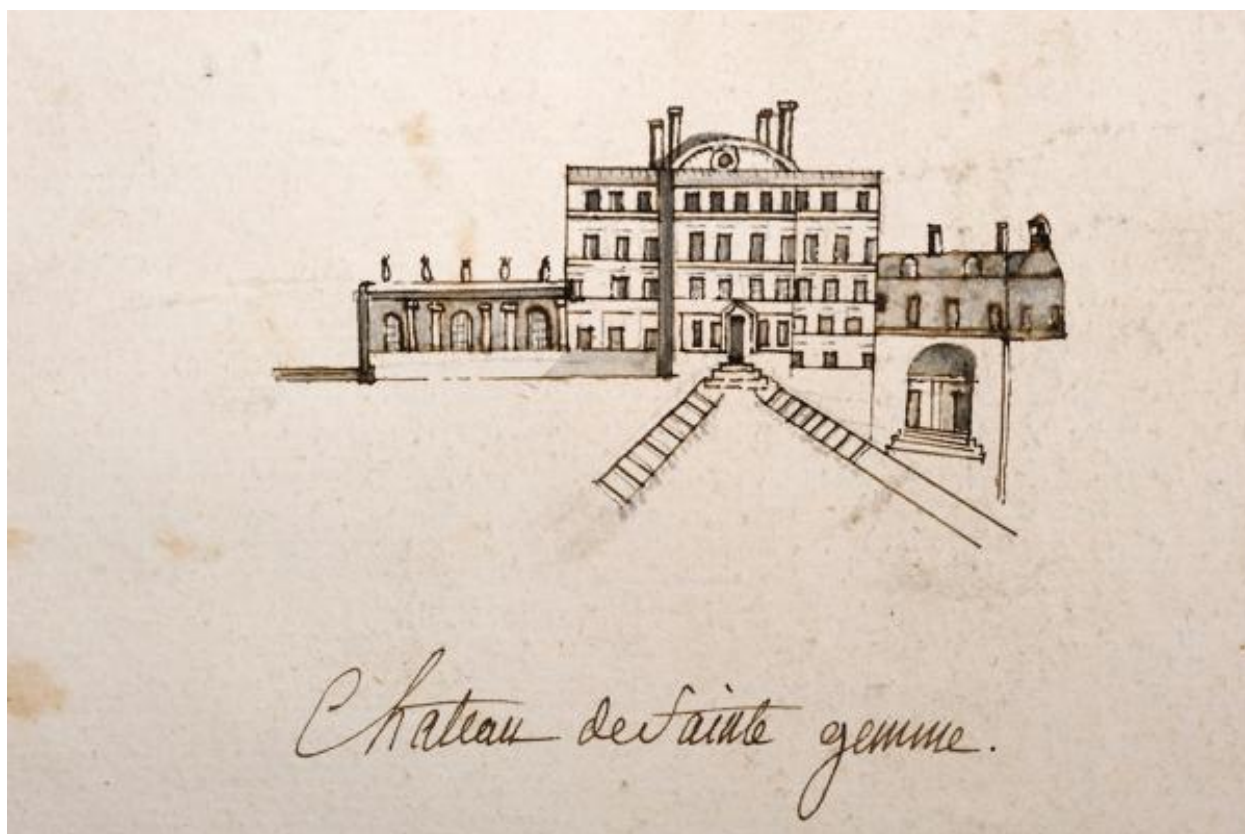 Chateau de Sainte gemme.